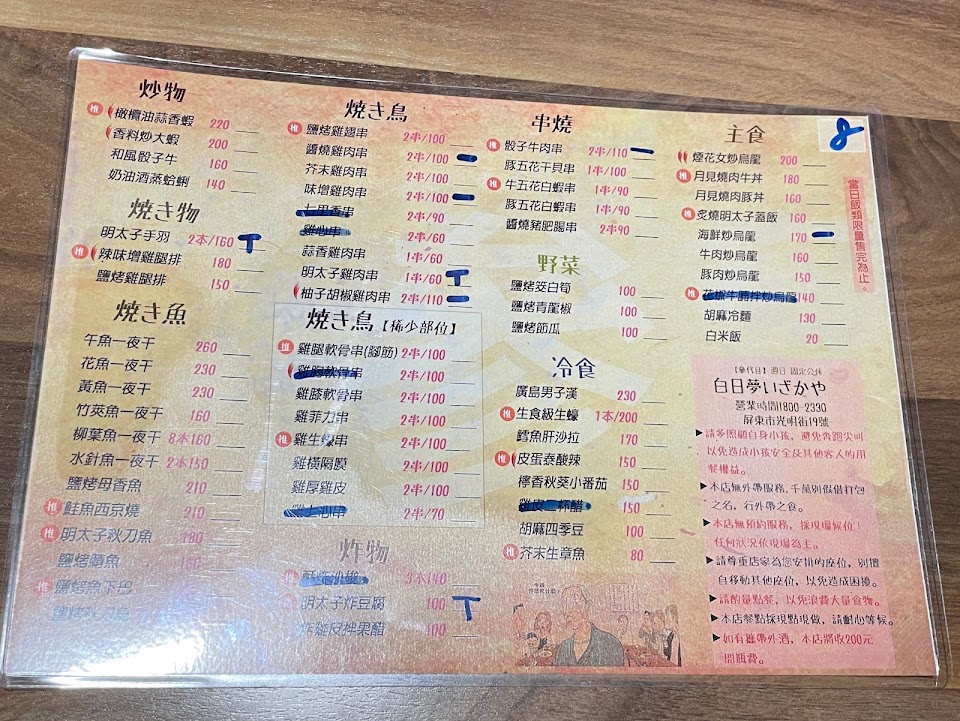 炒物
推 橄欖油蒜香蝦 220
香料炒大蝦 200
和風骰子牛 160
奶油酒蒸蛤蜊 140
焼き物
明太子手羽 2本/160 T
推 辣味增雞腿排 180
鹽烤雞腿排 150
焼き魚
午魚一夜干 260
花魚一夜干 230
黃魚一夜干 230
竹莢魚一夜干 160
柳葉魚一夜干 8本160
水針魚一夜干 2本150
鹽烤母香魚 210
推 鮭魚西京燒 210
推 明太子秋刀魚 180
鹽烤鯖魚 160
推 鹽烤魚下巴
焼き鳥
推 鹽烤雞翅串 2串/100
醬燒雞肉串 2串/100
芥末雞肉串 2串/100
味增雞肉串 2串/100
七里香串 2串/90
雞心串 2串/60
蒜香雞肉串 1串/60
明太子雞肉串 1串/60 T
柚子胡椒雞肉串 2串/110
焼き鳥【稀少部位】
推 雞腿軟骨串(腳筋) 2串/100
雞胸軟骨串 2串/100
雞膝軟骨串 2串/100
雞菲力串 2串/100
推 雞生蠔串 2串/100
雞橫隔膜 2串/100
雞厚雞皮 2串/100
2串/70
炸物
3本140
明太子炸豆腐 100 T
炸雞皮拌果醋 100
串燒
推 骰子牛肉串 2串/110
豚五花干貝串 1串/90
推 牛五花白蝦串 1串/90
豚五花白蝦串 1串/90
醬燒豬肥腸串 2串90
野菜
鹽烤筊白筍 100
鹽烤青龍椒 100
鹽烤節瓜 100
冷食
廣島男子漢 230
推 生食級生蠔 1本/200
鱈魚肝沙拉 170
推 皮蛋泰酸辣 150
檸香秋葵小番茄 150
雞皮三杯醋 150
胡麻四季豆 100
推 芥末生章魚 80
主食 8
煙花女炒烏龍 200
推 月見燒肉牛丼 180
月見燒肉豚丼 160
推 炙燒明太子蓋飯 160
海鮮炒烏龍 170
牛肉炒烏龍 160
豚肉炒烏龍 150
推 花椒牛腩拌炒烏龍 140
胡麻冷麵 130
白米飯 20
當日飯類限量售完為止。
【參代目】週日 固定公休
白日夢いざかや
營業時間1800-2330
屏東市光明街19號
▶請多照顧自身小孩，避免奔跑尖叫
以免造成小孩安全及其他客人的用
餐權益。
▶本店無外帶服務，千萬別假借打包
之名，行外帶之食。
▶本店無預約服務，採現場候位！
任何狀況依現場為主。
▶請尊重店家為您安排的座位，別擅
自移動其他座位，以免造成困擾。
▶請酌量點餐，以免浪費大量食物。
▶本店餐點採現點現做，請耐心等候。
▶如有攜帶外酒，本店將收200元
開瓶費。